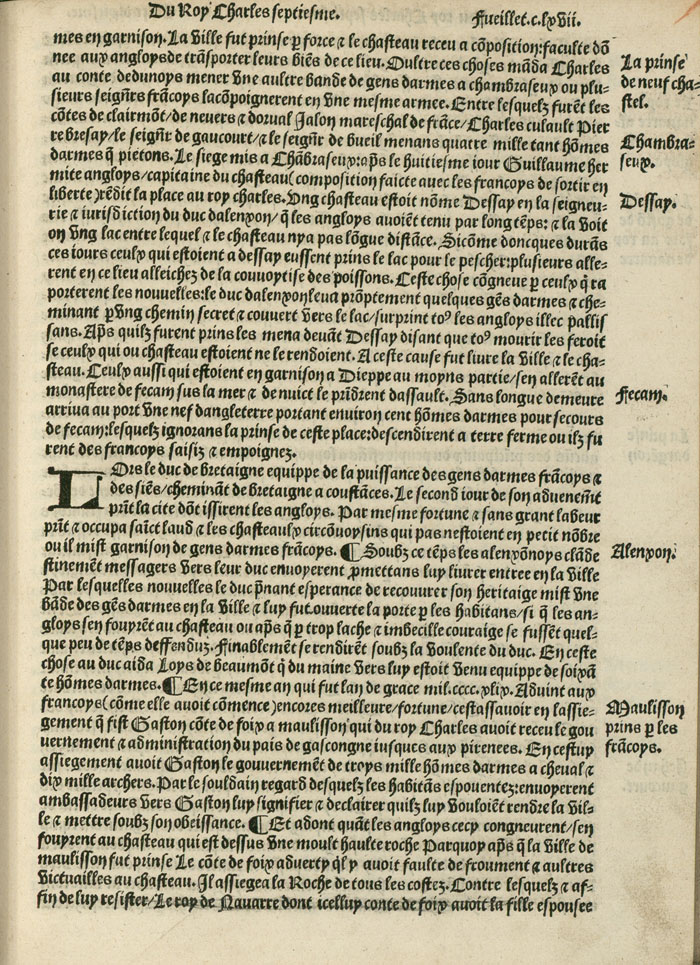 Du Roy Charles septiesme.
Fueillet.c.lxvii.
mes en garnison. La ville fut prinse ꝑ force ⁊ le chasteau receu a cõposition: faculte dõ
nee aux angloys de trãsporter leurs biẽs de ce lieu. Oultre ces choses mãda Charles
au conte dedunoys mener vne aultre bande de gens darmes a chambraseux ou plu-
sieurs seignr̃s frãcoys lacõpoignerent en vne mesme armee. Entre lesquelz furẽt les
cõtes de clairmõt/ de neuers ⁊ dorual Jalon mareschal de frãce/ Charles culault Pier
re bresay/ le seignr̃ de gaucourt/ ⁊ le seignr̃ de bueil menans quatre mille tant hõmes
darmes q̃ pietons. Le siege mis a Chãbraseux: apr̃s le huitiesme iour Guillaume her
mite angloys/ capitaine du chasteau (composition faicte auec les francoys de sortir en
liberte) rẽdit la place au roy charles. Vng chasteau estoit nõme Dessay en la seigneu-
rie ⁊ iurisdiction du duc dalenxon/ q̃ les angloys auoiẽt tenu par long tẽps: ⁊ la voit
on vng lac entre lequel ⁊ le chasteau nya pas lõgue distãce. Sicõme doncques durãs
ces iours ceulx qui estoient a dessay eussent prins le lac pour le pescher: plusieurs alle-
rent en ce lieu alleichez de la couuoytise des poissons. Ceste chose cõgneue ꝑ ceulx q̃ ra
porterent les nouuelles: le duc dalenxon leua prõptement quelques gẽs darmes ⁊ che-
minant ꝑ vng chemin secret ⁊ couuert vers le lac/ surprint toꝰ les angloys illec pallis
sans. Apr̃s quilz furent prins les mena deuãt Dessay disant que toꝰ mourir les feroit
se ceulx qui ou chasteau estoient ne le rendoient. A ceste cause fut liure la ville ⁊ le cha-
steau. Ceulx aussi qui estoient en garnison a Dieppe au moyns partie/ sen allerẽt au
monastere de fecam sus la mer ⁊ de nuict le prĩdrent dassault. Sans longue demeure
arriua au port vne nef dangleterre portant enuiron cent hõmes darmes pour secours
de fecam: lesquelz ignorans la prinse de ceste place: descendirent a terre ferme ou ilz fu
rent des francoys saisiz ⁊ empoignez.
LOrs le duc de bretaigne equippe de la puissance des gens darmes frãcoys ⁊
des siẽs/ cheminãt de bretaigne a coustãces. Le second iour de son aduenem̃t
prĩt la cite dõt issirent les angloys. Par mesme fortune ⁊ sans grant labeur
prĩt ⁊ occupa sainct laud ⁊ les chasteaulx circõuoysins qui pas nestoient en petit nõbre
ou il mist garnison de gens darmes frãcoys. ¶ Soubz ce tẽps les alenxõnoys clãde
stinemẽt messagers vers leur duc enuoyerent ꝓmettans luy liurer entree en la ville
Par lesquelles nouuelles le duc pr̃nant esperance de recouurer son heritaige mist vne
bãde des gẽs darmes en la ville ⁊ luy fut ouuerte la porte ꝑ les habitans/ si q̃ les an-
gloys sen fouyrẽt au chasteau ou apr̃s q̃ ꝑ trop lache ⁊ imbecille couraige se fussẽt quel-
que peu de tẽps deffenduz. Finablemẽt se rendirẽt soubz la voulente du duc. En ceste
chose au duc aida Loys de beaumõt q̃ du maine vers luy estoit venu equippe de soixã
te hõmes darmes. ¶ En ce mesme an qui fut lan de grace mil.cccc.xlix. Aduint aux
francoys (cõme elle auoit cõmence) encores meilleure/ fortune/ cestassauoir en lassie-
gement q̃ fist Gaston cõte de foix a maulisson qui du roy Charles auoit receu le gou
uernement ⁊ administration du pais de gascongne iusques aux pirenees. En cestuy
assiegement auoit Gaston le gouuernement de troys mille hõmes darmes a cheual ⁊
dix mille archers. Par le souldain regard desquelz les habitãs espouentez: enuoyerent
ambassadeurs vers Gaston luy signifier ⁊ declairer quilz luy vouloiẽt rendre la vil-
le ⁊ mettre soubz son obeissance. ¶ Et adont quãt les angloys cecy congneurent/ sen
fouyrent au chasteau qui est dessus vne moult haulte roche Parquoy apr̃s q̃ la ville de
maulisson fut prinse Le cõte de foix aduerty q̃l y auoit faulte de froument ⁊ aultres
victuailles au chasteau. Jl assiegea la Roche de tous les costez. Contre lesquelz ⁊ af-
fin de luy resister/ Le roy de Nauarre dont icelluy conte de foix auoit la fille espousee
La prinse
de neuf cha-
stel.
Chambra-
seux.
Dessay.
Fecam.
Alenxon.
Maulisson
prins ꝑ les
frãcoys.